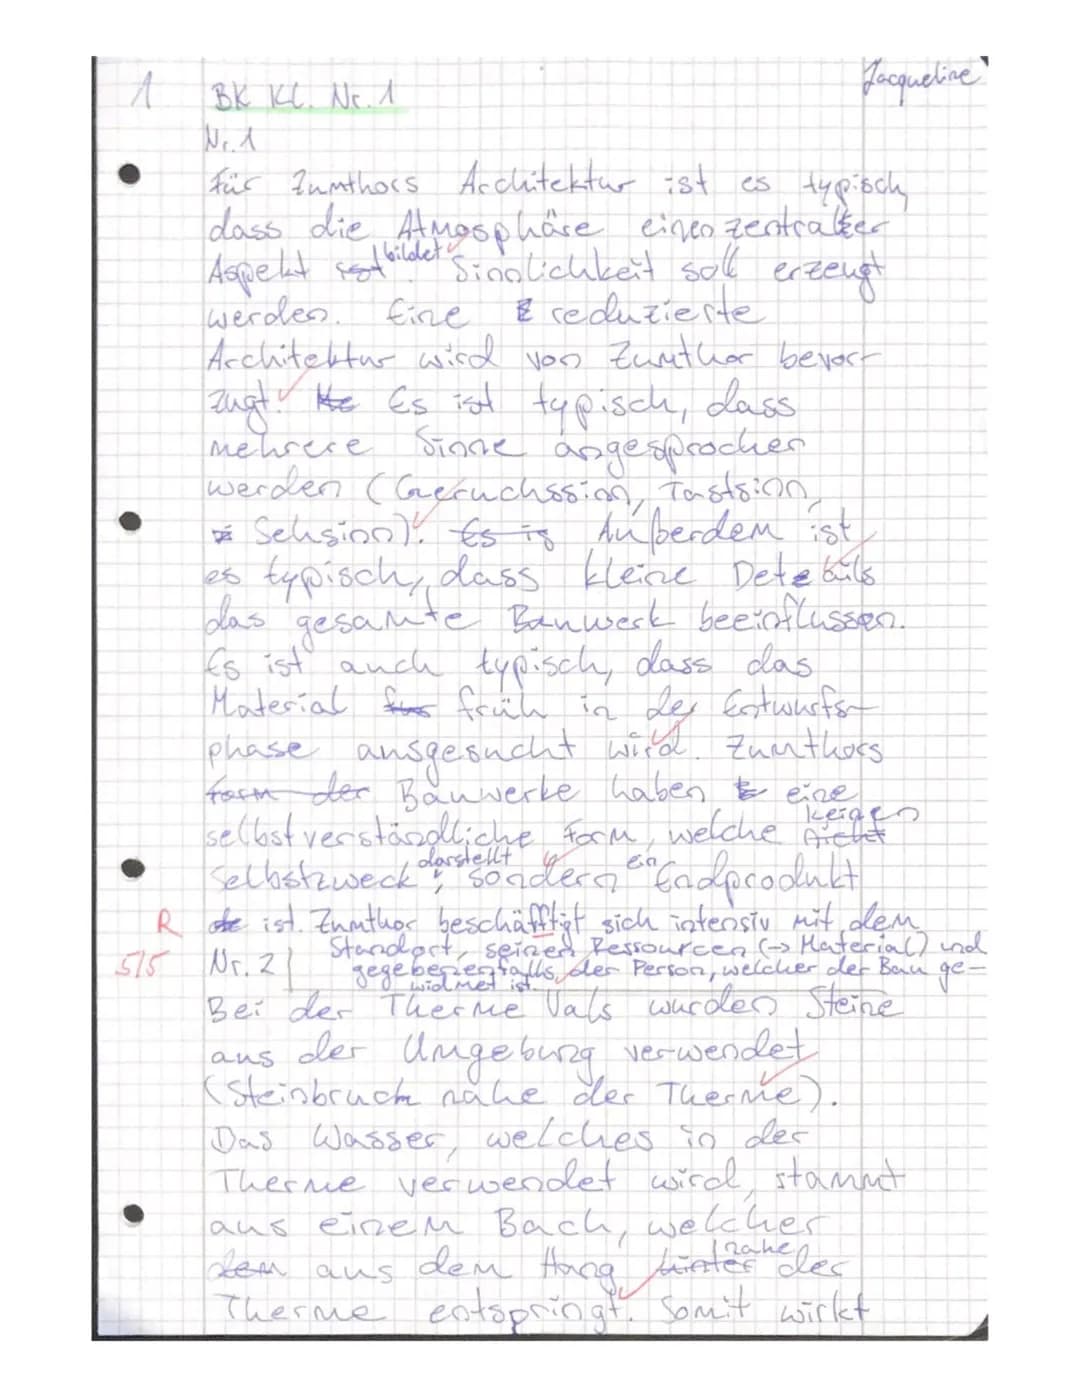 Jacqueline
1 BK KL. Nr. 1
Nr. 1
Für Zumthors Architektur ist es typisch,
dass die Atmosphäre einen zentralen
Aspekt bildet. Sinnlichkeit soll erzeugt
werden. Eine reduzierte
Architektur wird von Zumthor bevor-
zugt. Es ist typisch, dass
mehrere Sinne angesprochen
werden (Geruchssinn, Tastsinn,
Sehsinn). Außerdem ist
es typisch, dass kleine Details
das gesamte Bauwerk beeinflussen.
Es ist auch typisch, dass das
Material früh in der Entwurfs-
phase ausgesucht wird. Zumthors
Bauwerke haben eine
selbstverständliche Form, welche keinen
Selbstzweck darstellt, sondern ein Endprodukt
R ist. Zumthor beschäfftigt sich intensiv mit dem
Standort, seinen Ressourcen (-> Material) und
5/5 Nr. 2 gegebenenfalls, der Person, welcher der Bau ge-
widmet ist.
Bei der Therme Vals wurden Steine
aus der Umgebung verwendet
(Steinbruch nahe der Therme).
Das Wasser, welches in der
Therme verwendet wird, stammt
aus einem Bach, welcher
aus dem Hang nahe der
Therme entspringt. Somit wirkt